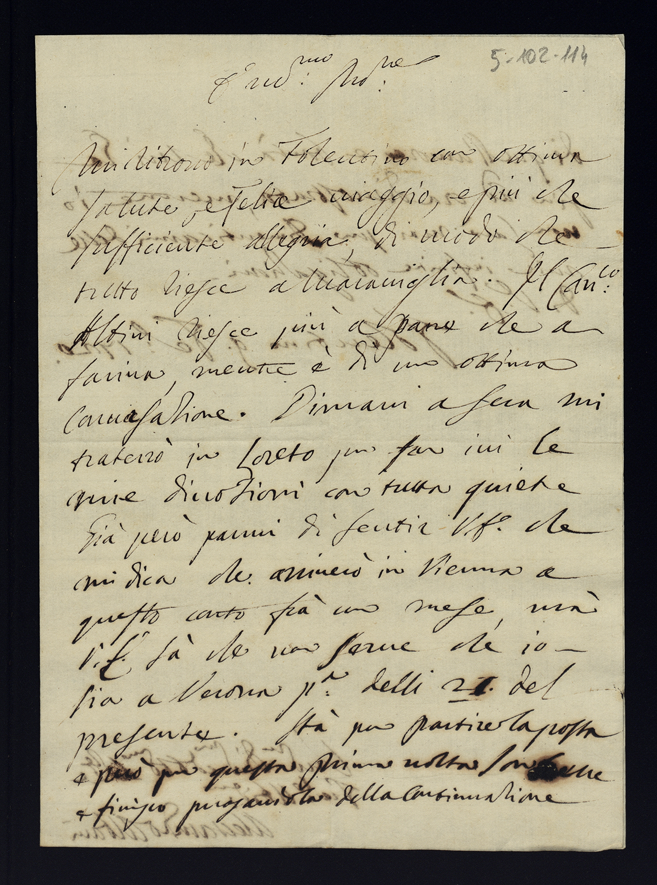 5-102-114
Em.mo Sig.re
Mi ritrovo in Tolentino con ottima
salute, e felice viaggio, e più che
sufficiente allegria, di modo che
tutto riesce a maraviglia. Il Can.co
Altini riesce più a pane che a
farina, mentre è di una ottima
conversazione. Dimani a sera mi
tratterrò in Loreto per far ivi le
mie divozioni con tutta quiete
Già però parmi di sentir V.E. che
mi dica che arriverò in Vienna a
questo conto frà un mese, mà
V.E. sà che non serve che io
sia a Verona p.a delli 21. del
presente. Stà per partire la posta
e però per questa prima volta son breve
e finisco pregandola della continuazione